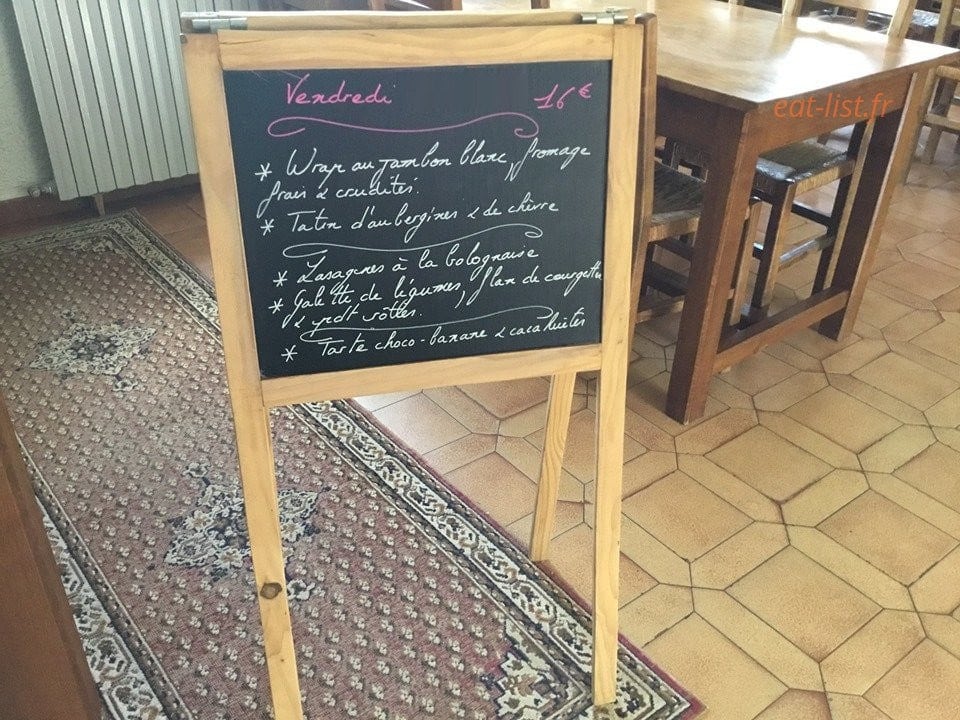 Vendredi 16€
* Wrap au jambon blanc, fromage
frais & crudités.
* Tatin d'aubergines & de chèvre
* Lasagnes à la bolognaise
* Galette de légumes, flan de courgette
& pdt rôties.
* Tarte choco-banane & cacahuètes
eat-list.fr